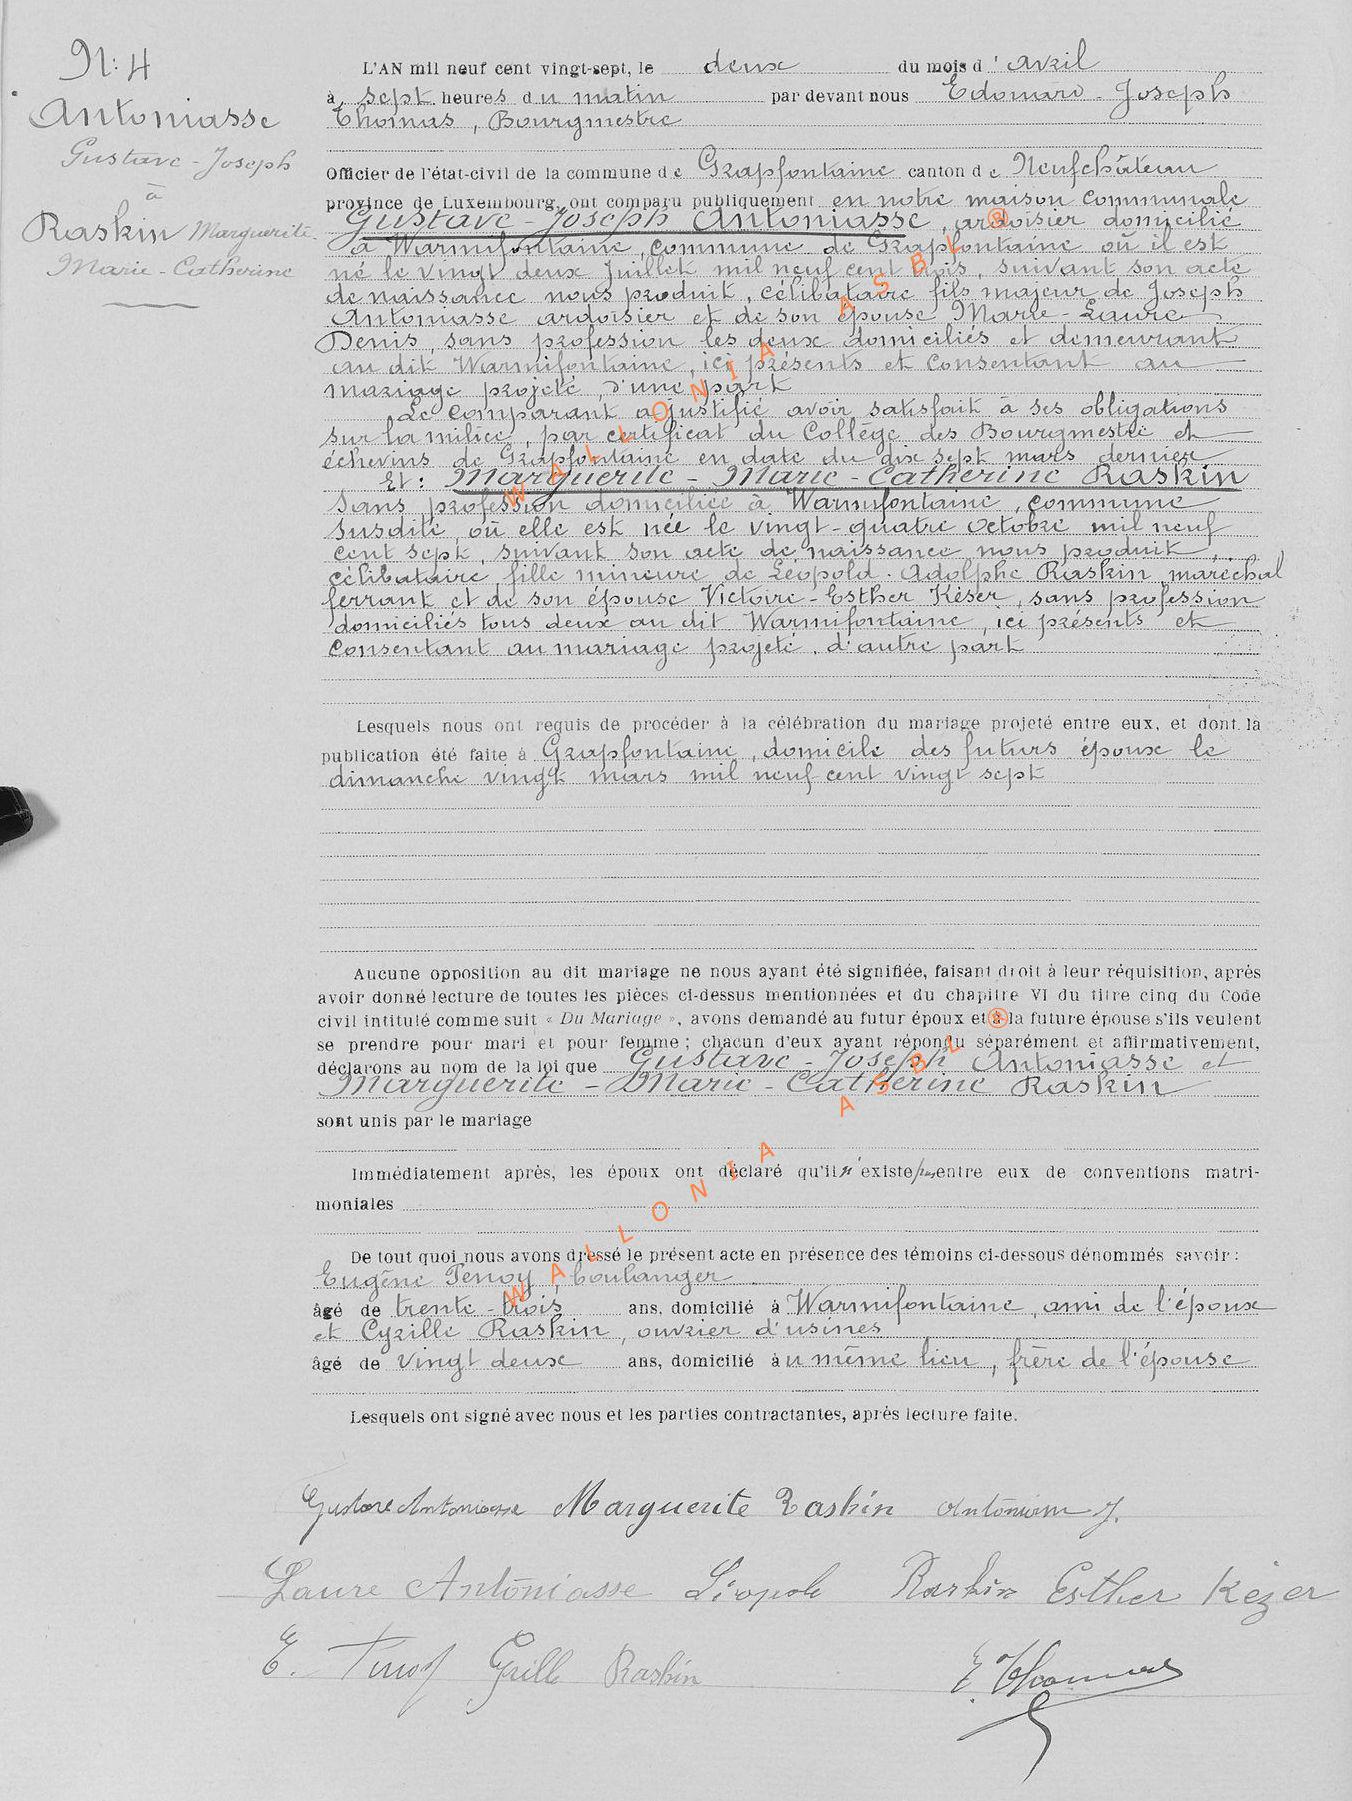 N: 4
Antoniasse
Gustave - Joseph
à
Raskin Marguerite -
Marie - Catherine
L'AN mil neuf cent vingt-sept, le deux du mois d'avril
à sept heures du matin par devant nous Edouard - Joseph
Thomas, Bourgmestre
Officier de l'état-civil de la commune de Grapfontaine canton de Neufchâteau
province de Luxembourg, ont comparu publiquement en notre maison communale
Gustave - Joseph Antoniasse, ardoisier domicilié
à Warmifontaine, commune de Grapfontaine où il est
né le vingt deux Juillet mil neuf cent trois, suivant son acte
de naissance nous produit, célibataire fils majeur de Joseph
Antoniasse ardoisier et de son épouse Marie - Laure
Denis, sans profession les deux domiciliés et demeurant
au dit Warmifontaine, ici présents et consentant au
mariage projeté, d'une part
Le comparant a justifié avoir satisfait à ses obligations
sur la milice, par certificat du Collège des Bourgmestre et
échevins de Grapfontaine en date du dix sept mars dernier
Et: Marguerite - Marie - Catherine Raskin
sans profession domiciliée à Warmifontaine, commune
susdite, où elle est née le vingt - quatre octobre mil neuf
cent sept, suivant son acte de naissance nous produit,
célibataire, fille mineure de Léopold - Adolphe Raskin, maréchal
ferrant et de son épouse Victoire - Esther Késer, sans profession
domiciliés tous deux au dit Warmifontaine, ici présents et
consentant au mariage projeté, d'autre part
Lesquels nous ont requis de procéder à la célébration du mariage projeté entre eux, et dont la
publication été faite à Grapfontaine, domicile des futurs époux le
dimanche vingt mars mil neuf cent vingt sept
Aucune opposition au dit mariage ne nous ayant été signifiée, faisant droit à leur réquisition, après
avoir donné lecture de toutes les pièces ci-dessus mentionnées et du chapitre VI du titre cinq du Code
civil intitulé comme suit « Du Mariage », avons demandé au futur époux et à la future épouse s'ils veulent
se prendre pour mari et pour femme ; chacun d'eux ayant répondu séparément et affirmativement,
déclarons au nom de la loi que Gustave - Joseph Antoniasse et
Marguerite - Marie - Catherine Raskin
sont unis par le mariage
Immédiatement après, les époux ont déclaré qu'il n'existe pas entre eux de conventions matri-
moniales
De tout quoi nous avons dressé le présent acte en présence des témoins ci-dessous dénommés savoir :
Eugène Penoy boulanger
âgé de trente - trois ans, domicilié à Warmifontaine, ami de l'époux
et Cyrille Raskin, ouvrier d'usines
âgé de vingt deux ans, domicilié au même lieu, frère de l'épouse
Lesquels ont signé avec nous et les parties contractantes, après lecture faite.
Gustave Antoniasse Marguerite Raskin J.
Laure Antoniasse Léopold Raskin Esther Kézer
E. Cyrille Raskin E. Thomas
WALLONIA ASBL ®
WALLONIA ASBL ®